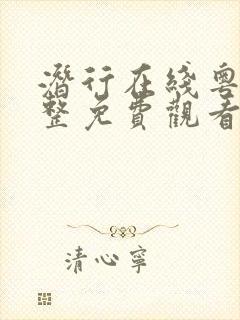 潛行在綫粵
整免費觀看
清心寧